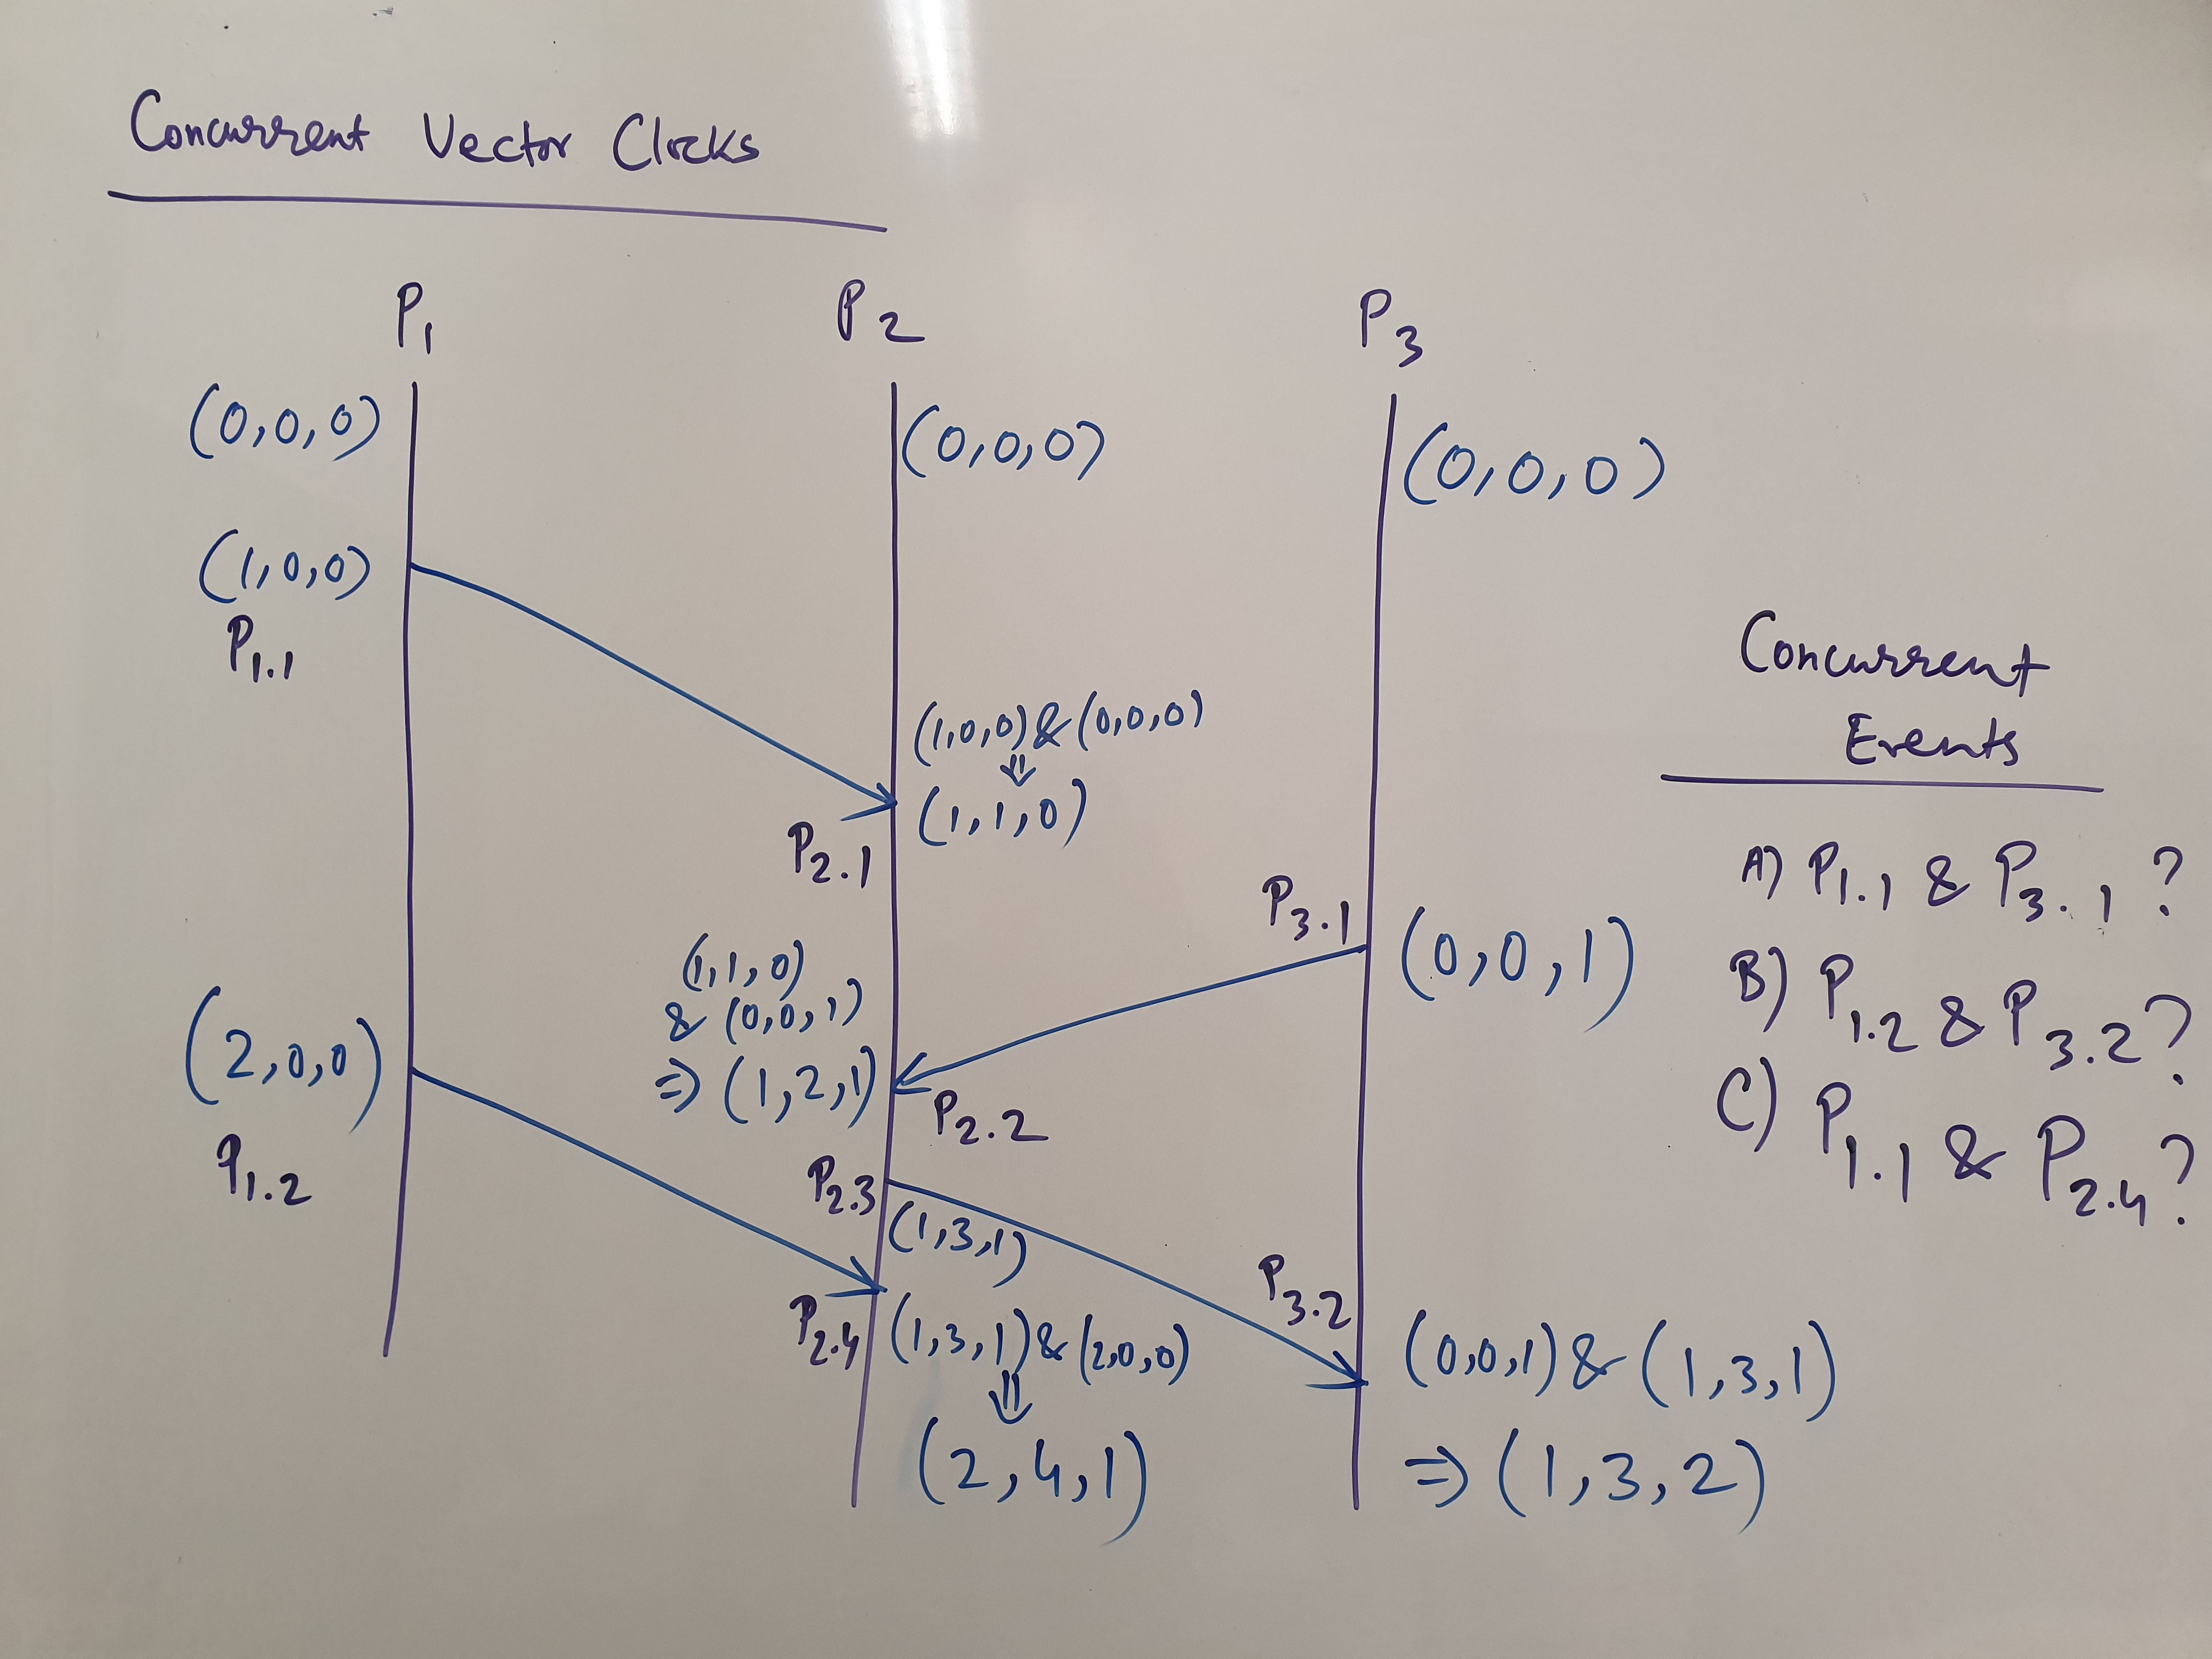 Concurrent Vector Clocks
P1 P2 P3
(0,0,0) (0,0,0) (0,0,0)
(1,0,0)
P1.1
(1,0,0) & (0,0,0)
⇓
(1,1,0)
P2.1
P3.1
(0,0,1)
(1,1,0)
& (0,0,1)
⇒ (1,2,1)
P2.2
(2,0,0)
P1.2
P2.3
(1,3,1)
P2.4
(1,3,1) & (2,0,0)
⇓
(2,4,1)
P3.2
(0,0,1) & (1,3,1)
⇒ (1,3,2)
Concurrent
Events
A) P1.1 & P3.1 ?
B) P1.2 & P3.2 ?
C) P1.1 & P2.4 ?